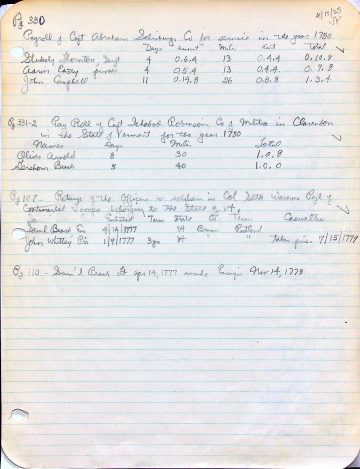 Pg 330
Payroll of Capt Abraham Salisburys Co for service in the year 1780
Days amt Miles amt Total
Stukely Thornton, Sergt 4 0.6.4 13 0.4.4 0.10.8
Aaron private 4 0.5.4 13 0.4.4 0.9.8
John Campbell " 11 0.14.8 26 0.8.8 1.3.4
Pg 331-2 Pay Roll of Capt Ichabod Robinson Co of Militia in Clarendon
in the State of Vermont for the year 1780
Names Days Miles Total
Oliver Arnold 8 30 1.0.8
Gershom Beach 5 40 1.0.0
Pg 107 - Return of the Officers & soldiers in Col Seth Warners Regt of
Continental Troops belonging to the State of Vt.
Enlisted Term State Co Town Casualties
Saml Beach 4/14/1777 Vt Rutland
John Whitley Pvt 1/9/1777 3 yrs Vt " Taken pris. 7/15/1779
Pg 110 - Sam'l Beach Apr 14, 1777 made Ensign Nov 14, 1778